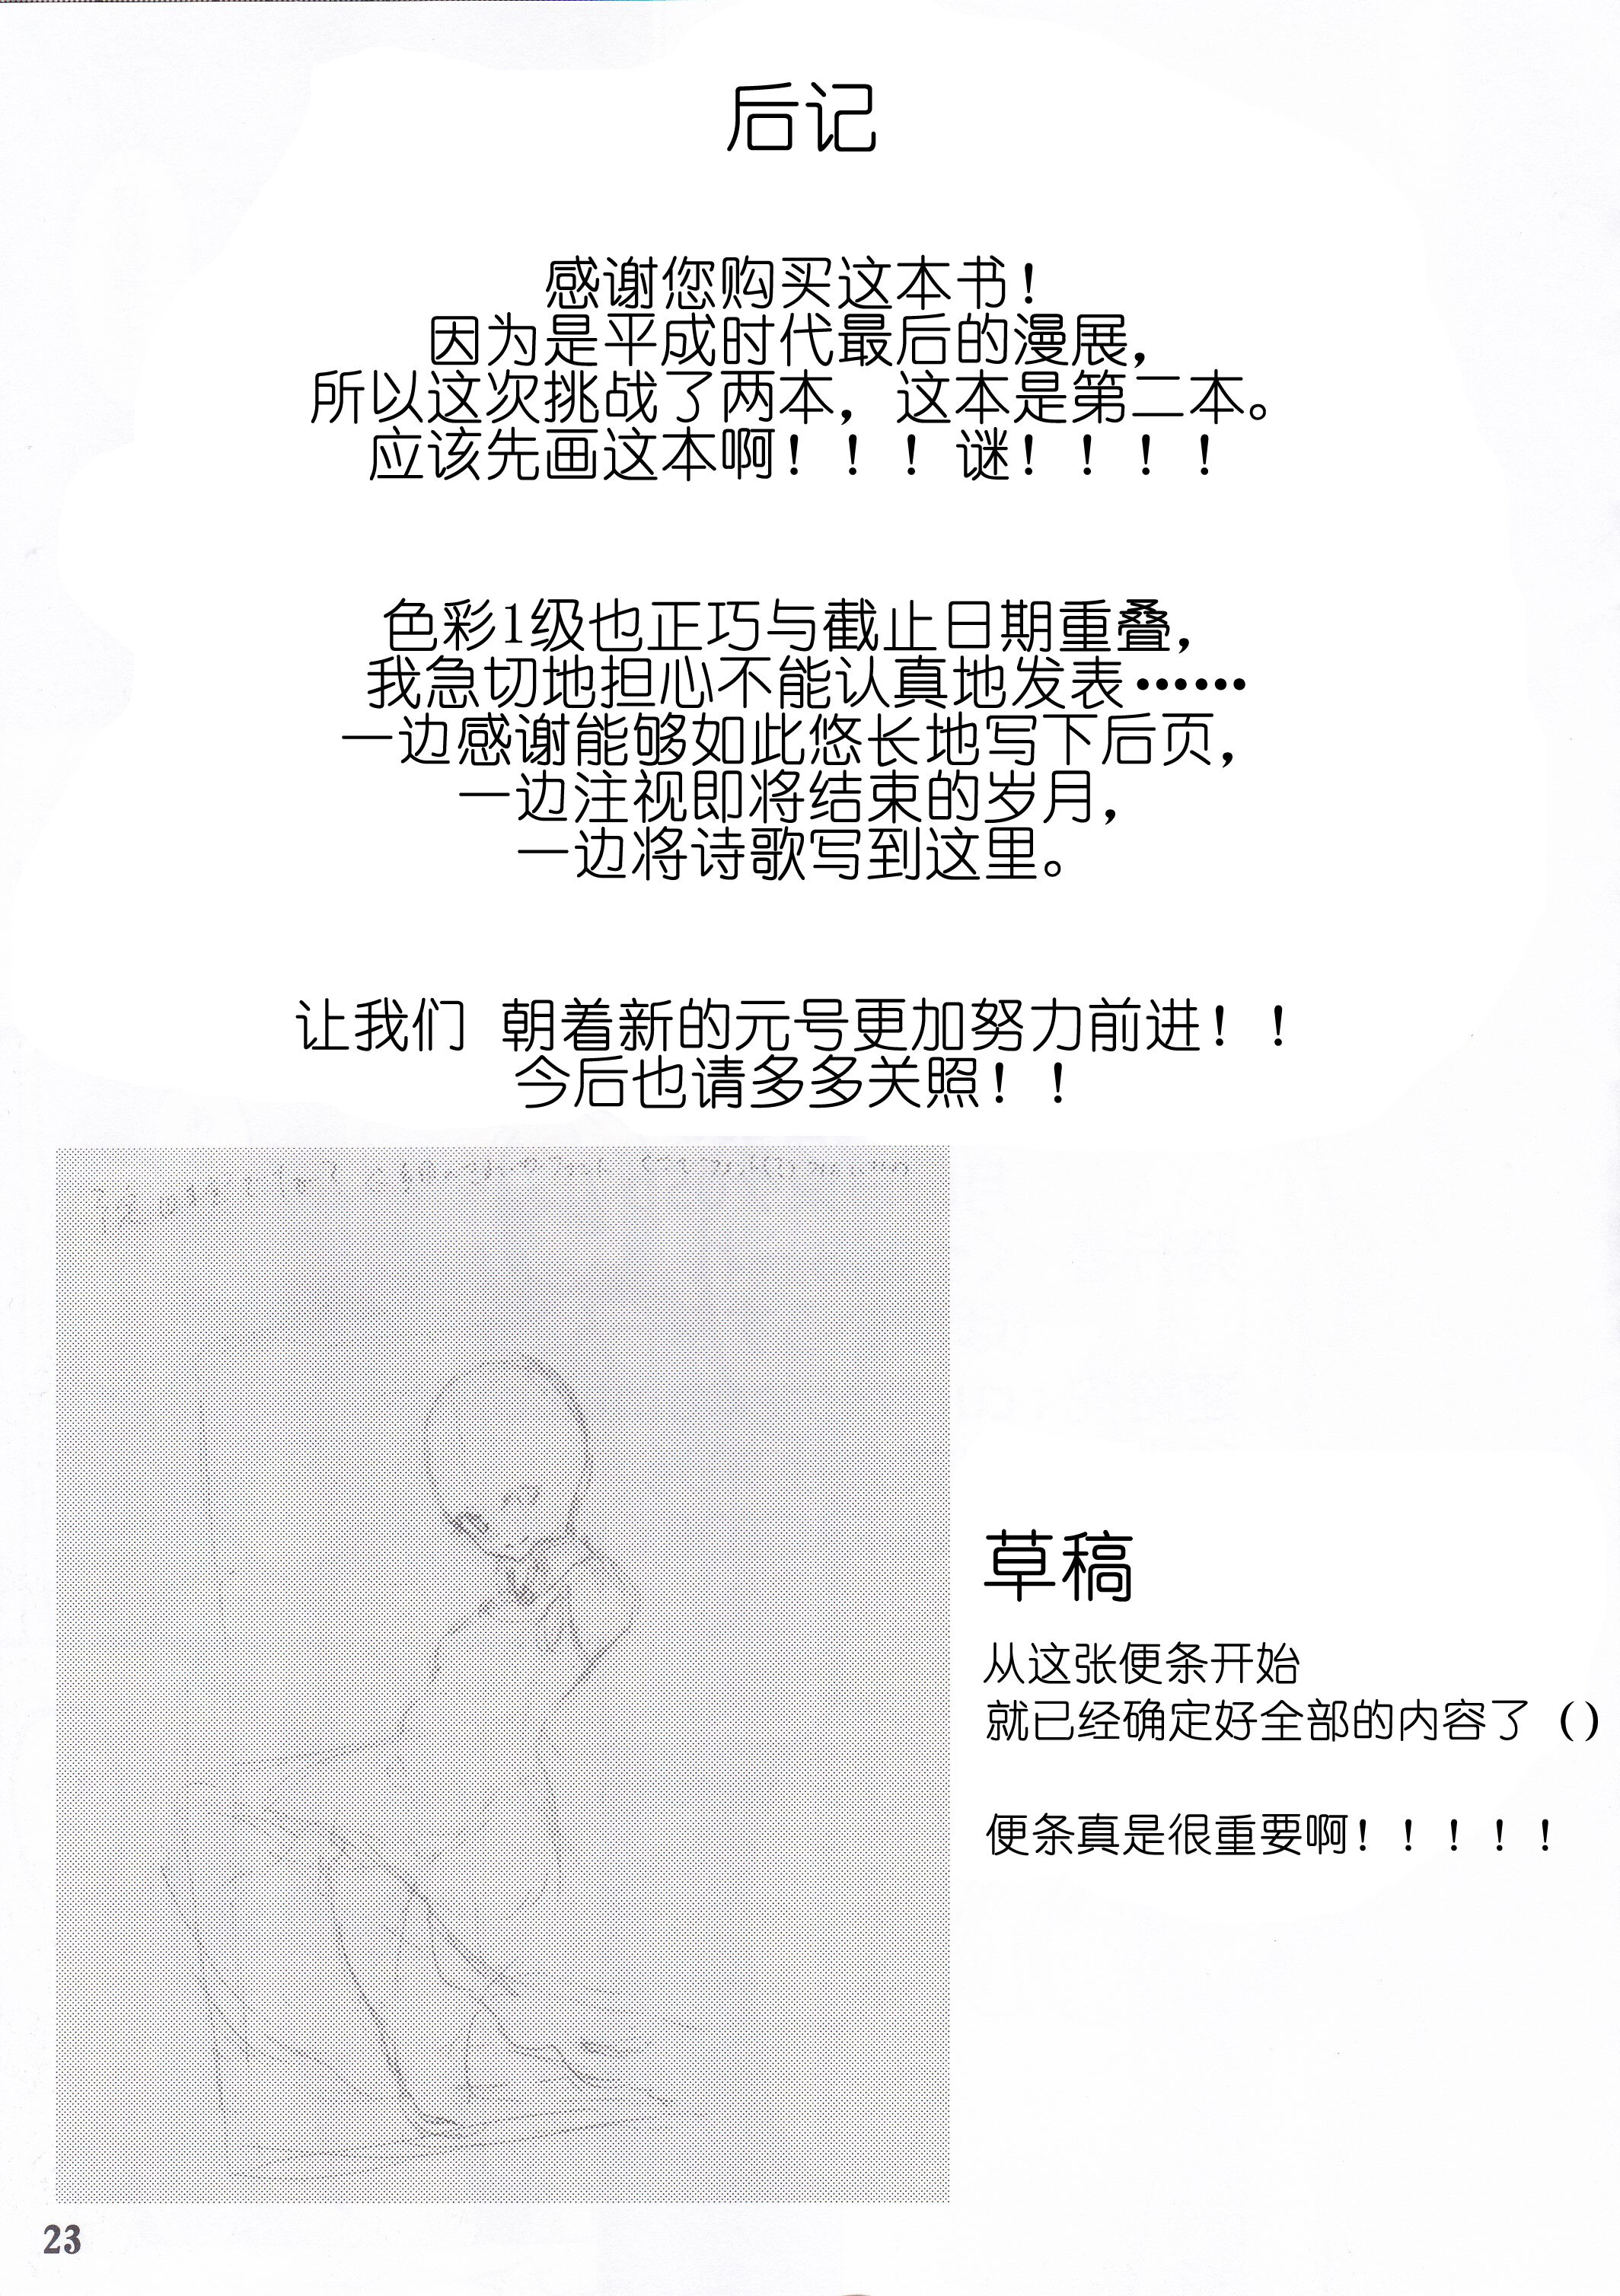 后记
感谢您购买这本书！
因为是平成时代最后的漫展，
所以这次挑战了两本，这本是第二本。
应该先画这本啊！！！谜！！！！
色彩1级也正巧与截止日期重叠，
我急切地担心不能认真地发表……
一边感谢能够如此悠长地写下后页，
一边注视即将结束的岁月，
一边将诗歌写到这里。
让我们 朝着新的元号更加努力前进！！
今后也请多多关照！！
草稿
从这张便条开始
就已经确定好全部的内容了（）
便条真是很重要啊！！！！！
23